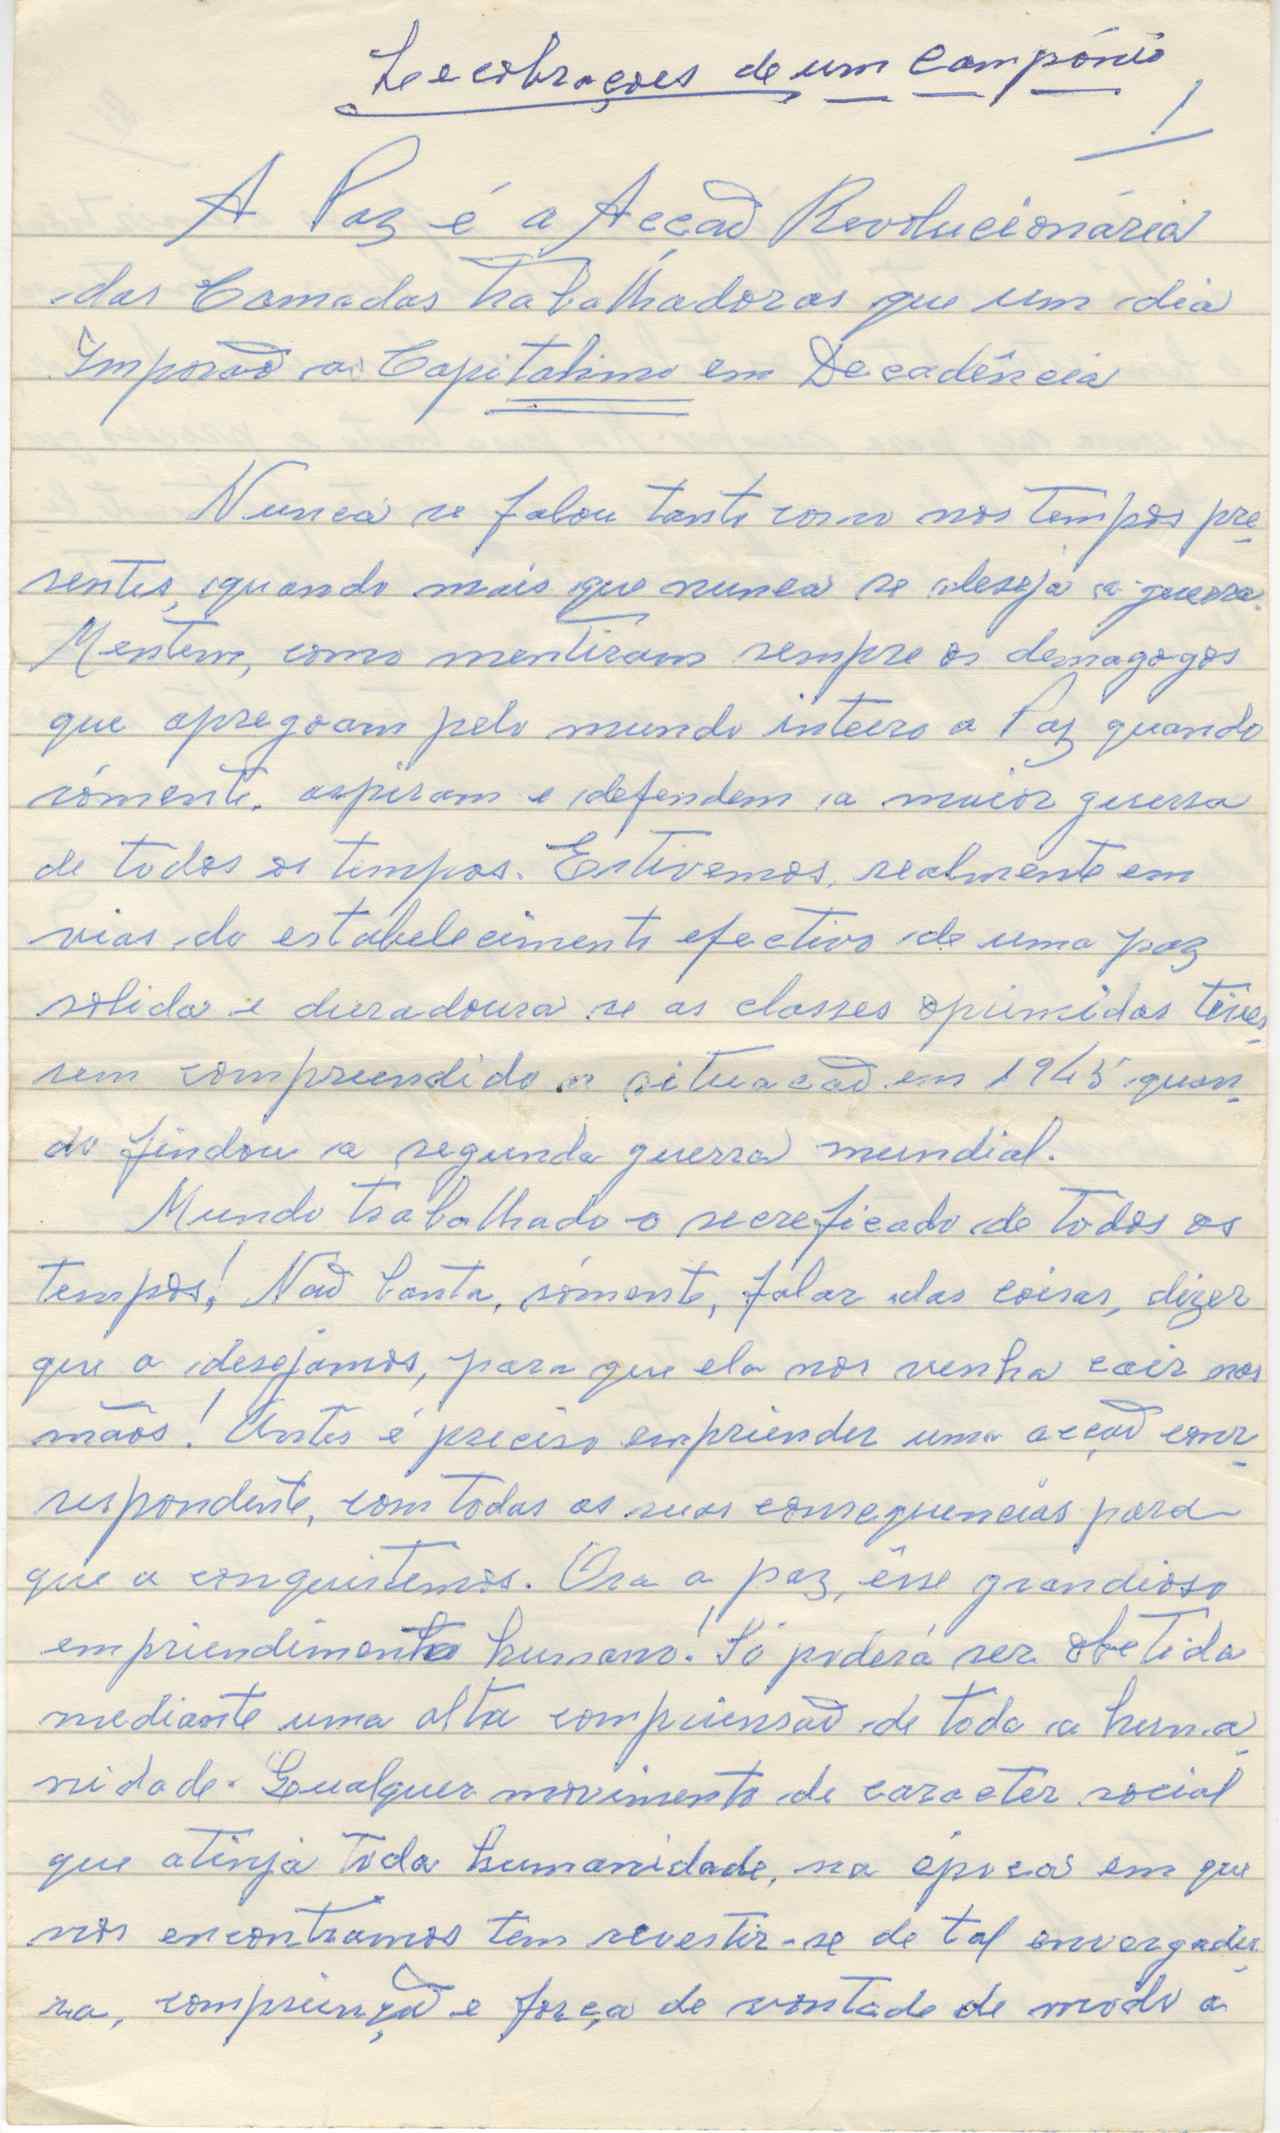 Lecobrações de um Campónio
1
A Paz é a Acção Revolucionária
das Camadas trabalhadoras que um dia
Imporão ao Capitalimo em Decadência
Nunca se falou tanto como nos tempos pre
sentes, quando mais que nunca se deseja a guerra.
Mentem, como mentiram sempre os demagogos
que apregoam pelo mundo inteiro a Paz quando
sómente, aspiram e defendem a maior guerra
de todos os tempos. Estivemos, realmente em
vias do estabelecimento efectivo de uma paz
solida e duradoura se as classes oprimidas tives
sem compreendido a situacão em 1945 quan
do findou a segunda guerra mundial.
Mundo trabalhado o secreficado de todos os
tempos! Não basta, sómente, falar das coisas, dizer
que a desejamos, para que ela nos venha cair nas
mãos! Antes é preciso empriender uma acção corr
respondente, com todas as suas consequencias para
que a conquistemos. Ora a paz, êsse grandioso
empriendimento humano! Só poderá ser obetida
mediante uma alta compriensão de toda a huma
nidade. Qualquer movimento de caracter social
que atinja toda humanidade, na época em que
nos encontramos tem revestir-se de tal envergadu
ra, comprienção e força de vontade de modo a